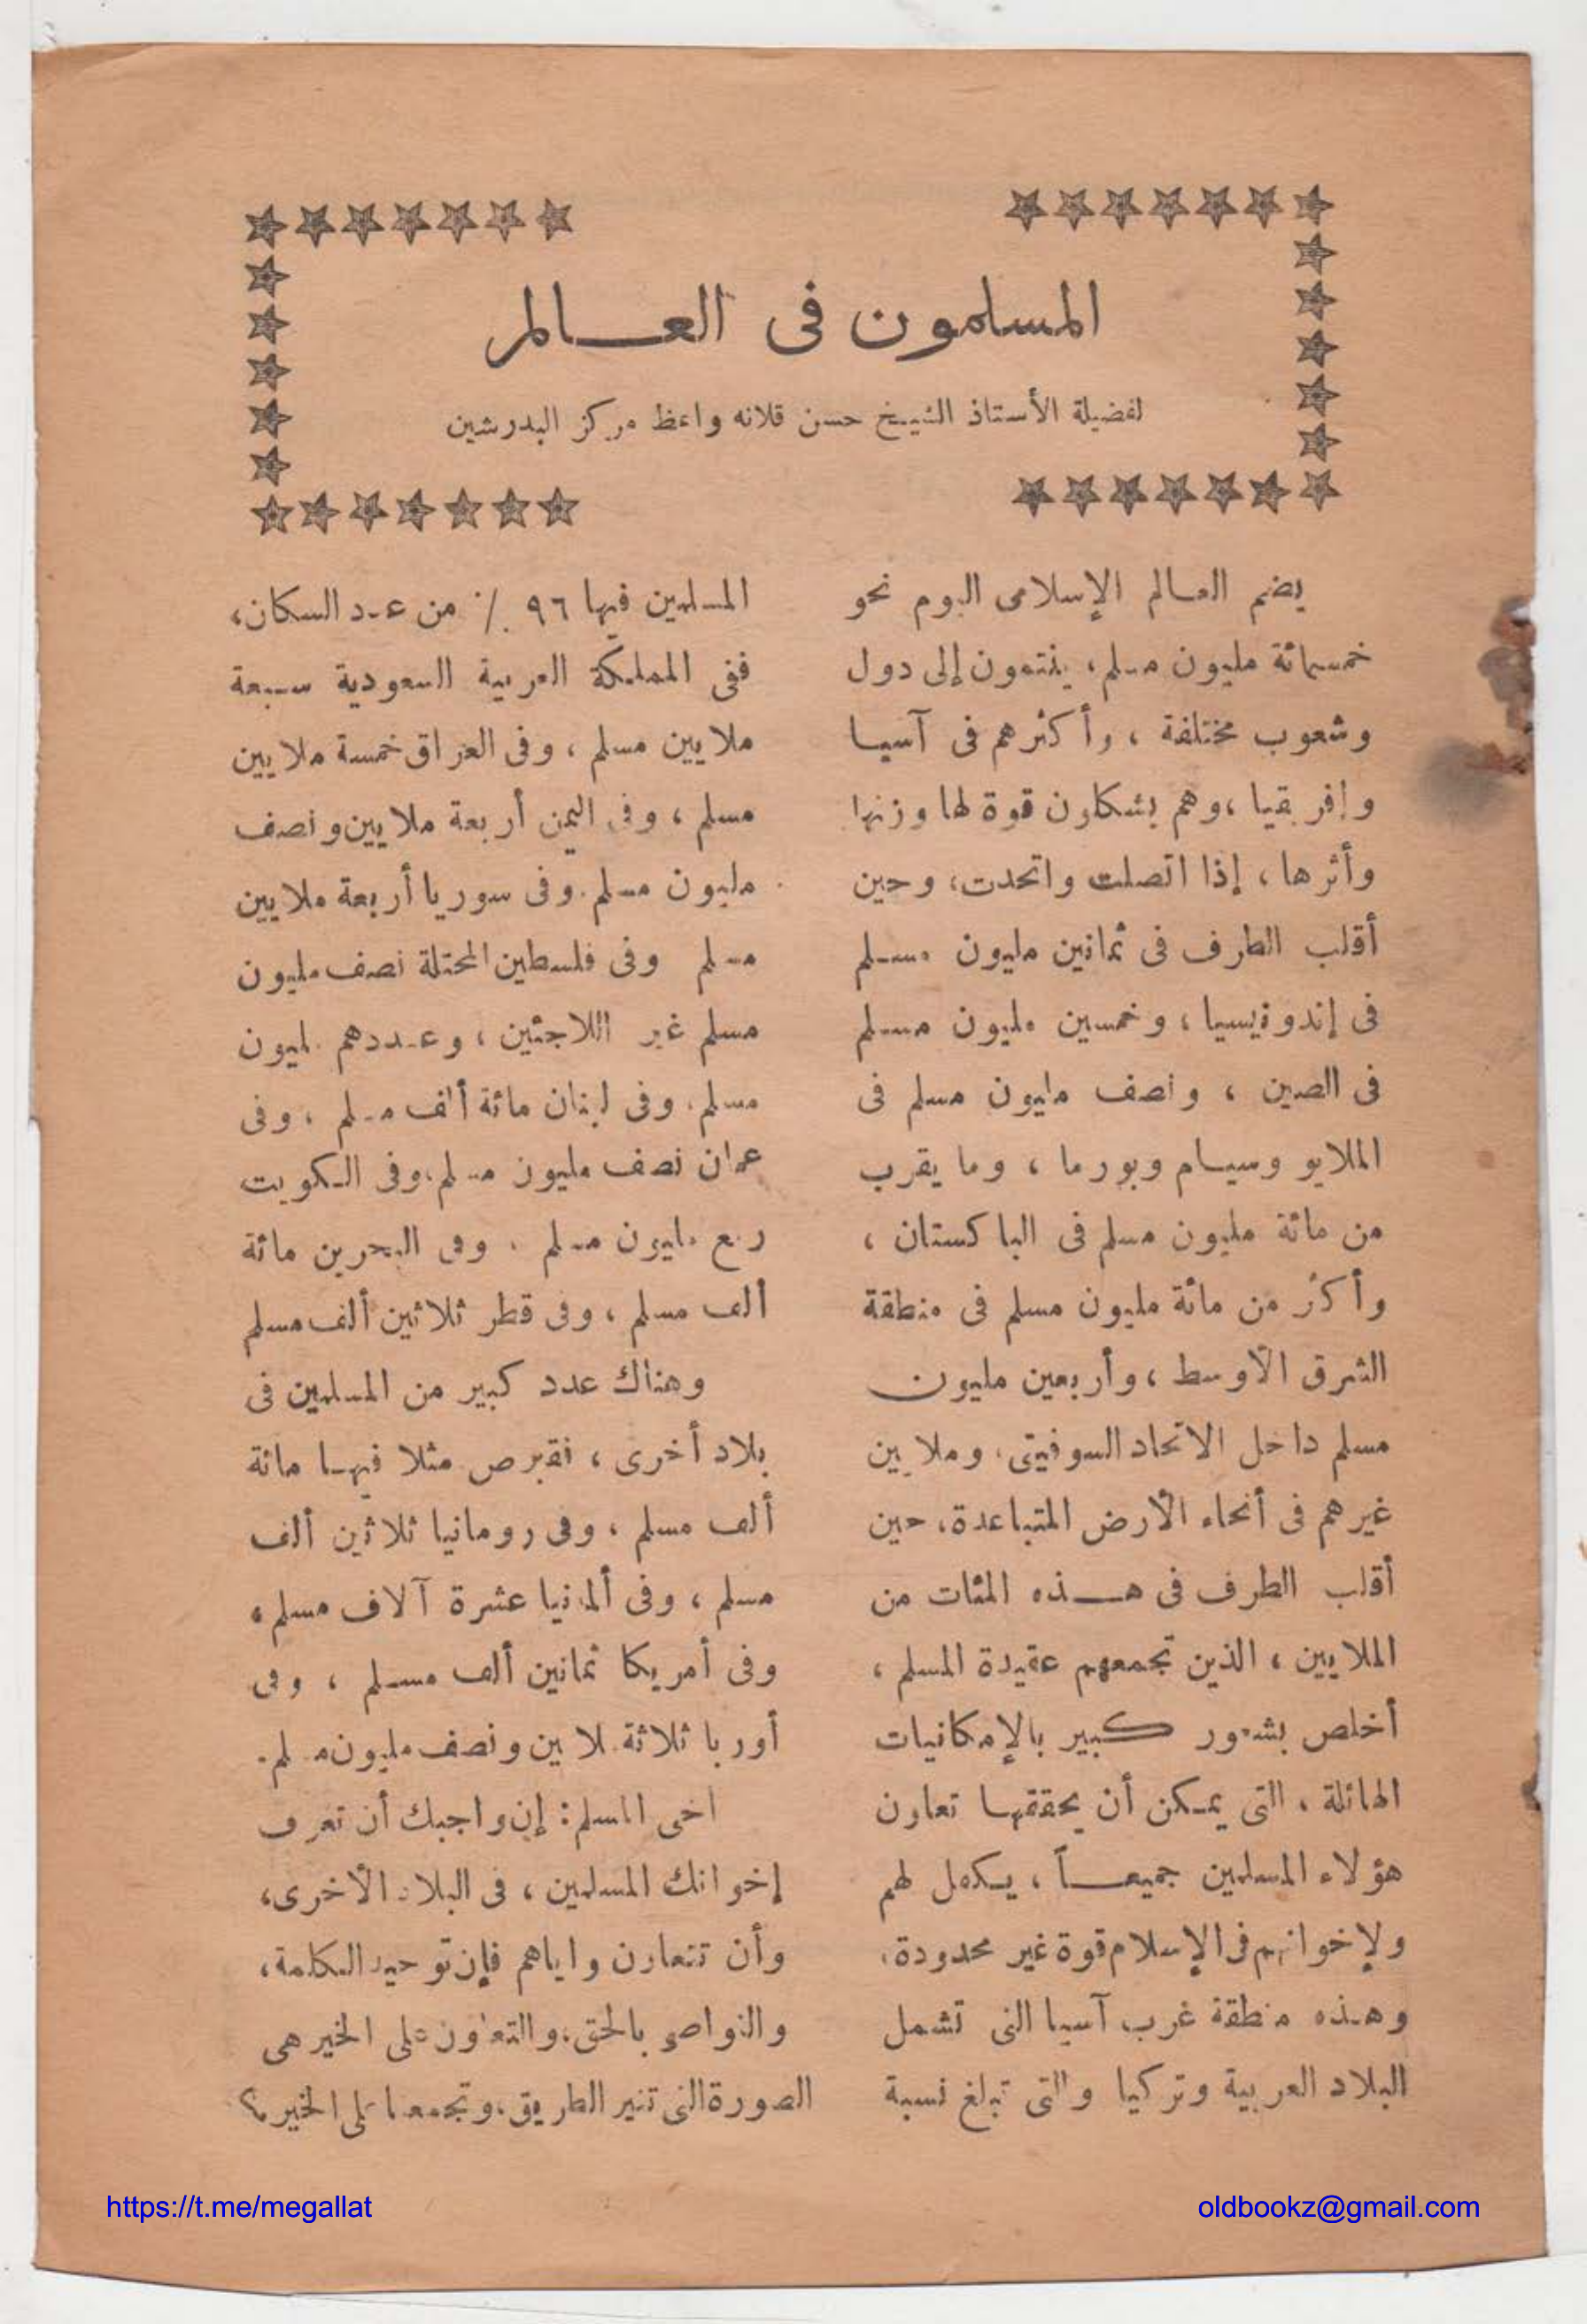 المسلمون فى العـــالم
لفضيلة الأستاذ الشيخ حسن قلانه واعظ مركز البدرشين
يضم العـالم الإسلامى اليوم نحو
خمسمائة مليون مسلم، ينتمون إلى دول
وشعوب مختلفة ، وأكثرهم فى آسيـا
وإفريقيا ،وهم يشكلون قوة لها وزنها
وأثرها ، إذا اتصلت واتحدت، وحين
أقلب الطرف فى ثمانين مليون مسـلم
فى إندونيسيا ، وخمسين مليون مسـلم
فى الصين ، ونصف مليون مسلم فى
الملايو وسيـام وبورما ، وما يقرب
من مائة مليون مسلم فى الباكستان ،
وأكثر من مائة مليون مسلم فى منطقة
الشرق الأوسط ، وأربعين مليون
مسلم داخل الاتحاد السوفيتى، وملايين
غيرهم فى أنحاء الأرض المتباعدة، حين
أقلب الطرف فى هـــذه المئات من
الملايين ، الذين تجمعهم عقيدة المسلم ،
أخلص بشعور كبير بالإمكانيات
الهائلة ، التى يمـكن أن يحققهـا تعاون
هؤلاء المسلمين جميعـــاً ، يـكفل لهم
ولإخوانهم فى الإسلام قوة غير محدودة،
وهـذه منطقة غرب آسيا التى تشمل
البلاد العربية وتركيا والتى تبلغ نسبة
المسلمين فيها ٩٦ ٪ من عدد السكان،
ففى المملكة العربية السعودية سـبعة
ملايين مسلم ، وفى العراق خمسة ملايين
مسلم ، وفى اليمن أربعة ملايين ونصف
مليون مسلم. وفى سوريا أربعة ملايين
مسلم وفى فلسطين المحتلة نصف مليون
مسلم غير اللاجئين ، وعـددهم مليون
مسلم. وفى لبنان مائة ألف مسلم ، وفى
عمان نصف مليون مسلم،وفى الـكويت
ربع مليون مسلم . وفى البحرين مائة
ألف مسلم ، وفى قطر ثلاثين ألف مسلم
وهناك عدد كبير من المسلمين فى
بلاد أخرى ، فقبرص مثلا فيهـا مائة
ألف مسلم ، وفى رومانيا ثلاثين ألف
مسلم ، وفى ألمانيا عشرة آلاف مسلم ،
وفى أمريكا ثمانين ألف مسـلم ، وفى
أوربا ثلاثة ملايين ونصف مليون مسلم.
أخى المسلم: إن واجبك أن تعرف
إخوانك المسلمين ، فى البلاد الأخرى،
وأن تتعاون وإياهم فإن توحيد الـكلمة،
والتواصى بالحق،والتعاون على الخير هى
الصورة التى تنير الطريق،وتجمعنا على الخير ؟
https://t.me/megallat
oldbookz@gmail.com